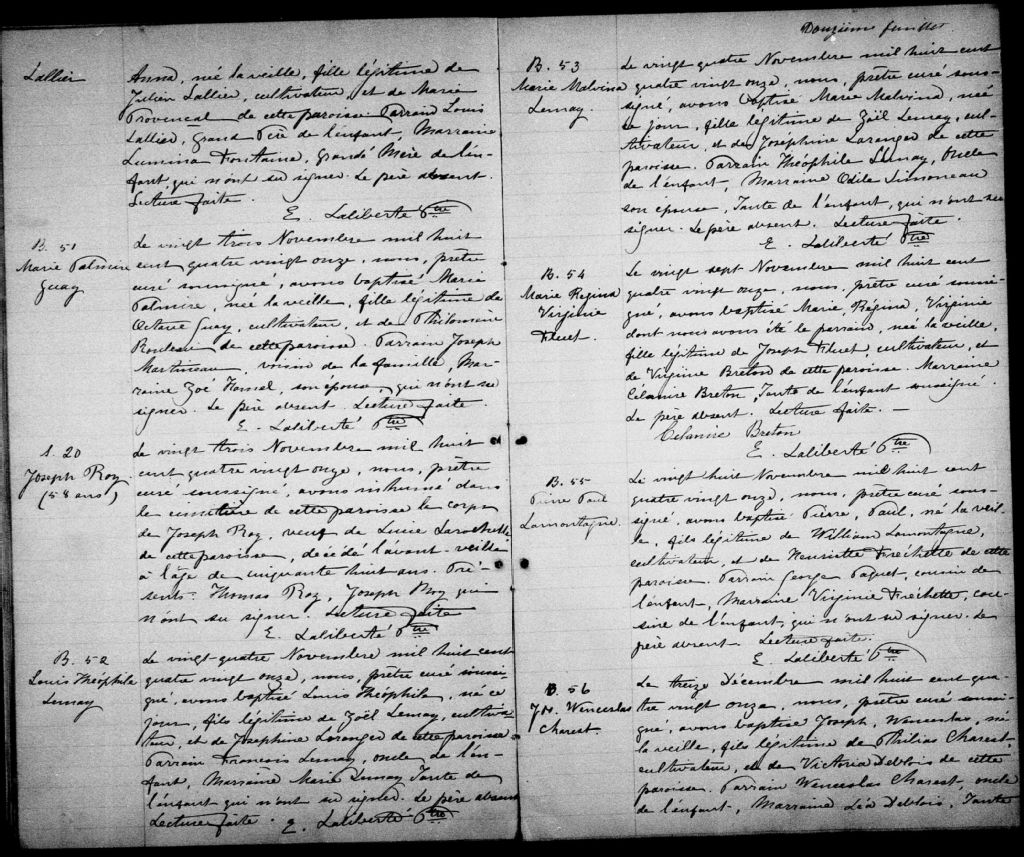 Lallier
Anna, née la veille, fille légitime de
Julien Lallier, cultivateur, et de Marie
Provencal de cette paroisse. Parrain Louis
Lallier, Grand Père de l'enfant, Marraine
Lumina Fontaine, Grande Mère de l'en-
fant, qui n'ont su signer. Le père absent.
Lecture faite.
E. Laliberté Ptre
B. 51
Marie Palmire
Guay
Le vingt trois Novembre mil huit
cent quatre vingt onze, nous, prêtre
curé soussigné, avons baptisé Marie
Palmire, née la veille, fille légitime de
Octave Guay, cultivateur, et de Philomène
Rouleau de cette paroisse. Parrain Joseph
Martineau, voisin de la famille, Mar-
raine Zoé Hamel, son épouse, qui n'ont su
signer. Le père absent. Lecture faite.
E. Laliberté Ptre
S. 20
Joseph Roy
(58 ans)
Le vingt trois Novembre mil huit
cent quatre vingt onze, nous, prêtre
curé soussigné, avons inhumé dans
le cimetière de cette paroisse le corps
de Joseph Roy, veuf de Lucie Larochelle
de cette paroisse, décédé l'avant-veille
à l'âge de cinquante huit ans. Pré-
sents: Thomas Roy, Joseph Roy qui
n'ont su signer. Lecture faite
E. Laliberté Ptre
B. 52
Louis Théophile
Lemay
Le vingt-quatre Novembre mil huit cent
quatre vingt onze, nous, prêtre curé soussi-
gné, avons baptisé Louis Théophile, né ce
jour, fils légitime de Zoël Lemay, cultiva-
teur, et de Josephine Loranger de cette paroisse
Parrain François Lemay, oncle de l'en-
fant, Marraine Marie Lemay Tante de
l'enfant qui n'ont su signer. Le père absent
Lecture faite. E. Laliberté Ptre
Douzième feuillet
B. 53
Marie Malvina
Lemay
Le vingt quatre Novembre mil huit cent
quatre vingt onze, nous, prêtre curé sous-
signé, avons baptisé Marie Malvina, née
ce jour, fille légitime de Zoël Lemay, cul-
tivateur, et de Joséphine Loranger de cette
paroisse. Parrain Théophile Lemay, Oncle
de l'enfant, Marraine Odile Simoneau
son épouse, Tante de l'enfant, qui n'ont su
signer. Le père absent. Lecture faite.
E. Laliberté Ptre
B. 54
Marie Regina
Virginie
Fluet
Le vingt sept Novembre mil huit cent
quatre vingt onze, nous, prêtre curé soussi-
gné, avons baptisé Marie, Régina, Virginie
dont nous avons été le parrain, née la veille,
fille légitime de Joseph Fluet, cultivateur, et
de Virginie Breton de cette paroisse. Marraine
Célanire Breton, Tante de l'enfant soussigné.
Le père absent. Lecture faite. —
Célanire Breton
E. Laliberté Ptre
B. 55
Pierre Paul
Lamontagne
Le vingt huit Novembre mil huit cent
quatre vingt onze, nous, prêtre curé sous-
signé, avons baptisé Pierre, Paul, né la veil-
le, fils légitime de William Lamontagne,
cultivateur, et de Henriette Fréchette de cette
paroisse. Parrain George Paquet, cousin de
l'enfant, Marraine Virginie Fréchette, cou-
sine de l'enfant, qui n'ont su signer. Le
père absent. Lecture faite.
E. Laliberté Ptre
B. 56
Jos. Wenceslas
Charest
Le treize Décembre mil huit cent qua-
tre vingt onze, nous, prêtre curé soussi-
gné, avons baptisé Joseph, Wenceslas, né
la veille, fils légitime de Philias Charest,
cultivateur, et de Victoria Deblois de cette
paroisse. Parrain Wenceslas Charest, oncle
de l'enfant, Marraine Léa Deblois, Tante